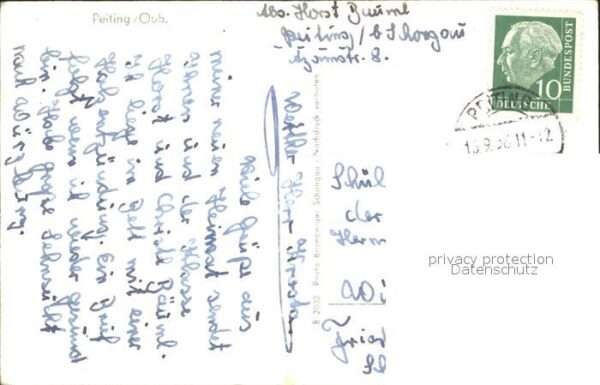 Peiting/Obb.
Abs. Horst Bäuml
Peiting/b Schongau
8.
DEUTSCHE BUNDESPOST
10
PEITING
-9.56.11-12
Werther Herr
Viele Grüße aus
meiner neuen Heimat sendet
ihnen und der Klasse
Horst und Christl Bäuml.
Ich liege im Bett mit einer
Halsentzündung. Ein Brief
folgt wenn ich wieder gesund
bin. Habe große Sehnsucht
nach Würzburg.
B 2002 Photo Brumberger Schongau - Nachdruck verboten
Schül
der
Herrn
privacy protection
Datenschutz